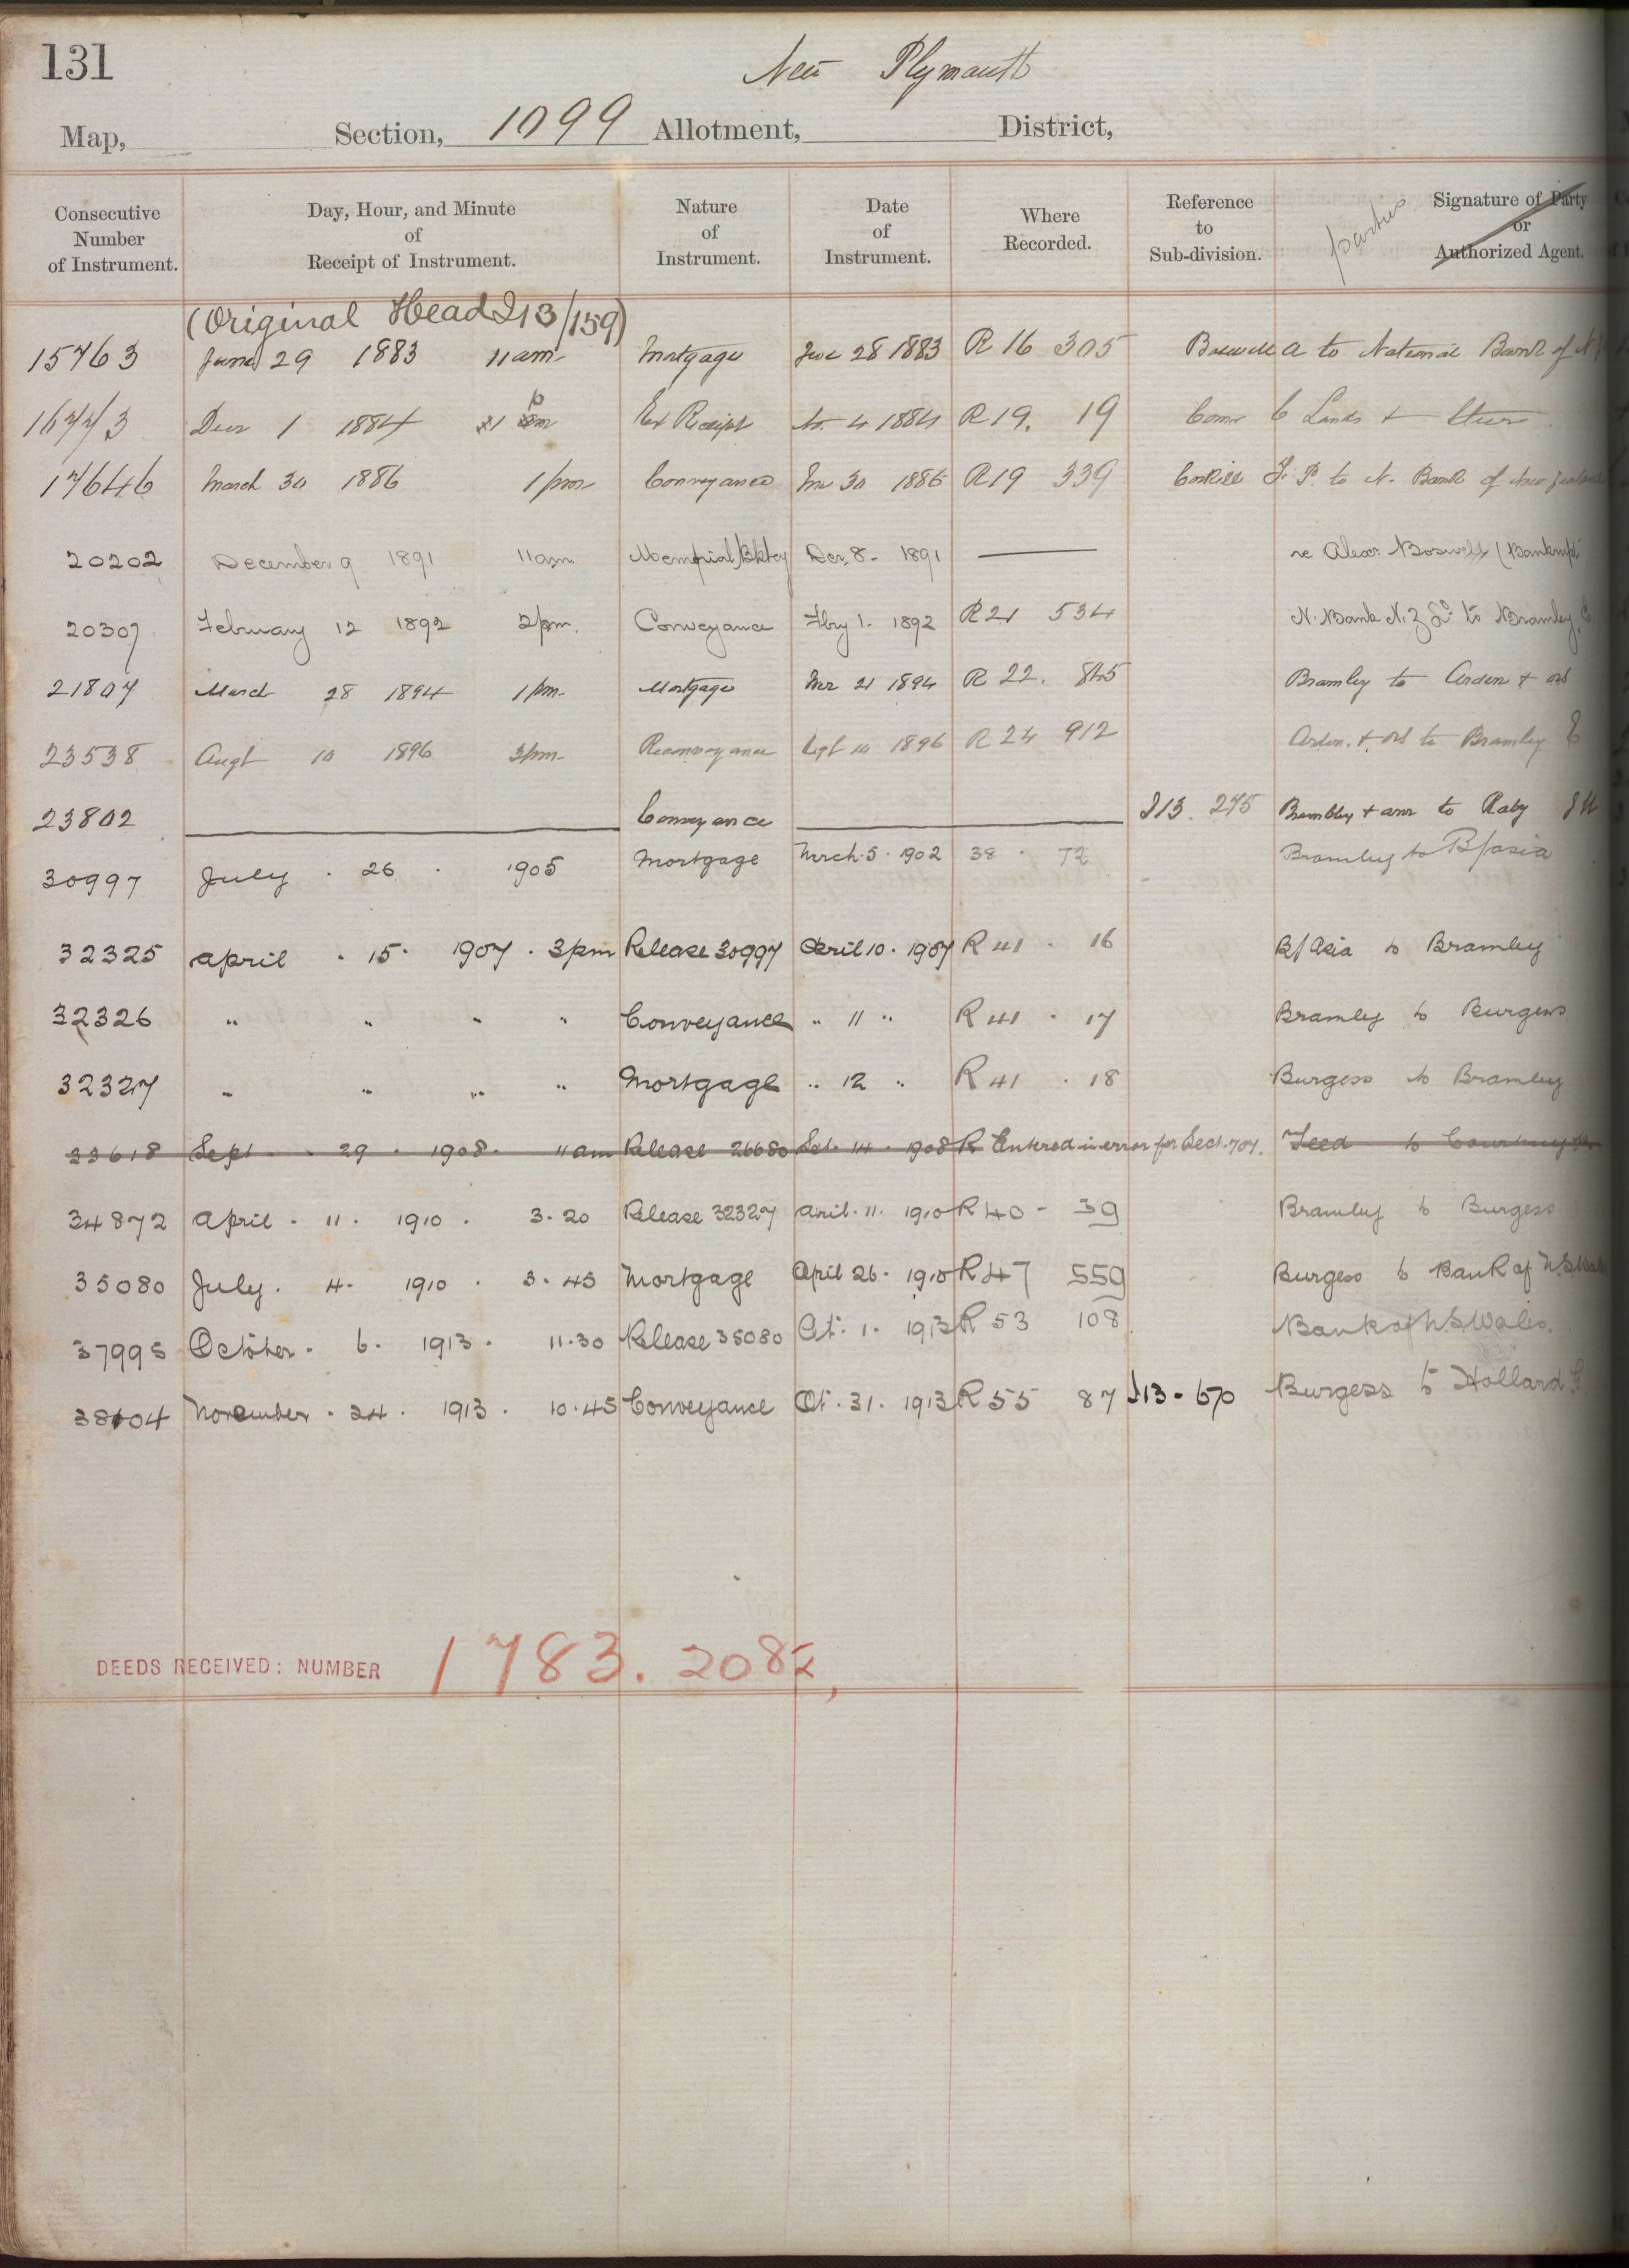 131
New Plymouth
Map, Section, 1099 Allotment, District,
Consecutive Number of Instrument. Day, Hour, and Minute of Receipt of Instrument. Nature of Instrument. Date of Instrument. Where Recorded. Reference to Sub-division. parties Signature of Party or Authorized Agent.
(Original Head I13/159)
15763 June 29 1883 11am Mortgage June 28 1883 R 16 305 Boswell A to National Bank of N
Decr 1 1884 1 pm Receipt 4 1884 R 19. 19 Lands &
17646 March 30 1886 1 pm Conveyance Mar 30 1886 R19 339 Corkill F. P. to N. Bank of New Zealand
20202 December 9 1891 11am Memorial/Bktcy Dec. 8 - 1891 re Alexr Boswell (Bankrupt
20307 February 12 1892 2pm. Conveyance Fbry 1. 1892 R21 534 N. Bank N.Z Ld to Bramley. E.
21807 March 28 1894 1 pm Mortgage Mar 21 1894 R 22. 845 Bramley to Arden & ors
23538 Augt 10 1896 3pm Reconveyance 10 1896 R 24 912 Arden. & ors to Bramley E
23802 Conveyance I13. 275 Brambley & anr to Raby J W
30997 July . 26 . 1905 Mortgage March. 5. 1902 38 . 72 Bramley to B/asia
32325 April . 15. 1907 . 3pm Release 30997 April 10. 1907 R 41 . 16 B/Asia to Bramley
32326 " " " " Conveyance " 11 " R 41 . 17 Bramley to Burgess
32327 " " " " Mortgage " 12 " R 41 . 18 Burgess to Bramley
33618 Sept . 29 . 1908. 11am Release 26680 Set. 14 . 1908 R Entered in error for Sect. 707. Teed to Courtney
34872 April . 11. 1910 . 3.20 Release 32327 April. 11. 1910 R 40 - 39 Bramley to Burgess
35080 July. 4. 1910 . 3.45 Mortgage April 26. 1910 R 47 559 Burgess to Bank of N.S Wales
37995 October . 6. 1913. 11.30 Release 35080 Oct. 1. 1913 R 53 108 Bank of N.S.Wales.
38104 November . 24 . 1913 . 10.45 Conveyance Oct. 31. 1913 R 55 87 I13 - 670 Burgess to Hollard
DEEDS RECEIVED: NUMBER 1783. 2082,